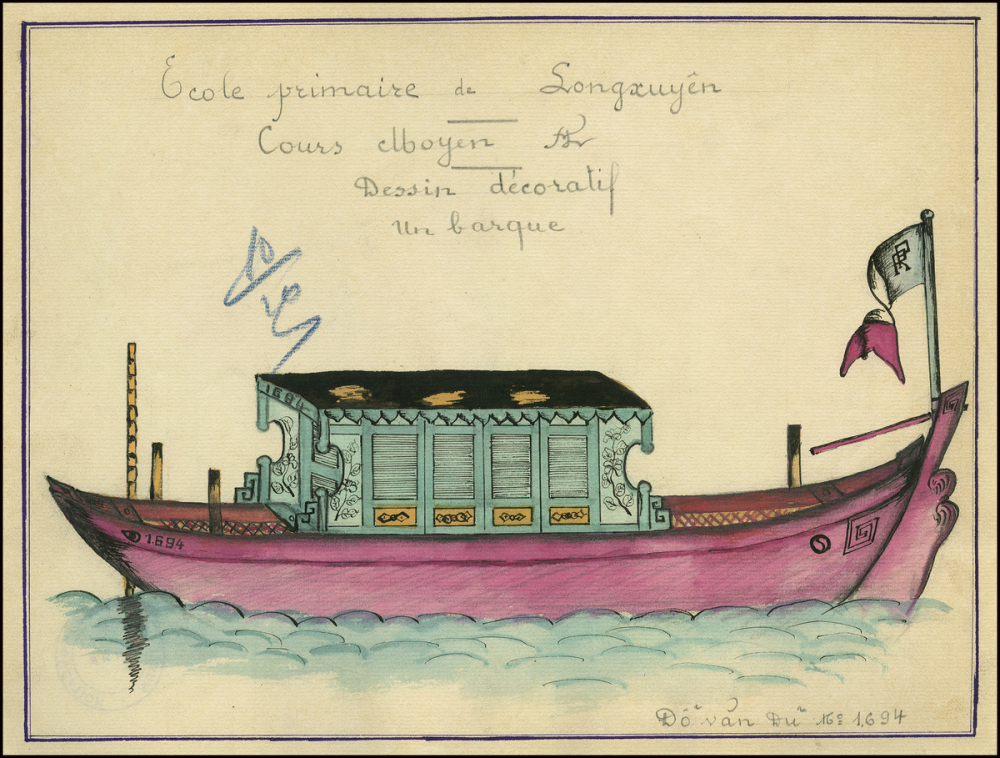 Ecole primaire de Longxuyên
Cours Moyen
Dessin décoratif
Un barque
1694
1.694
Đỗ văn Dữ No 1.694